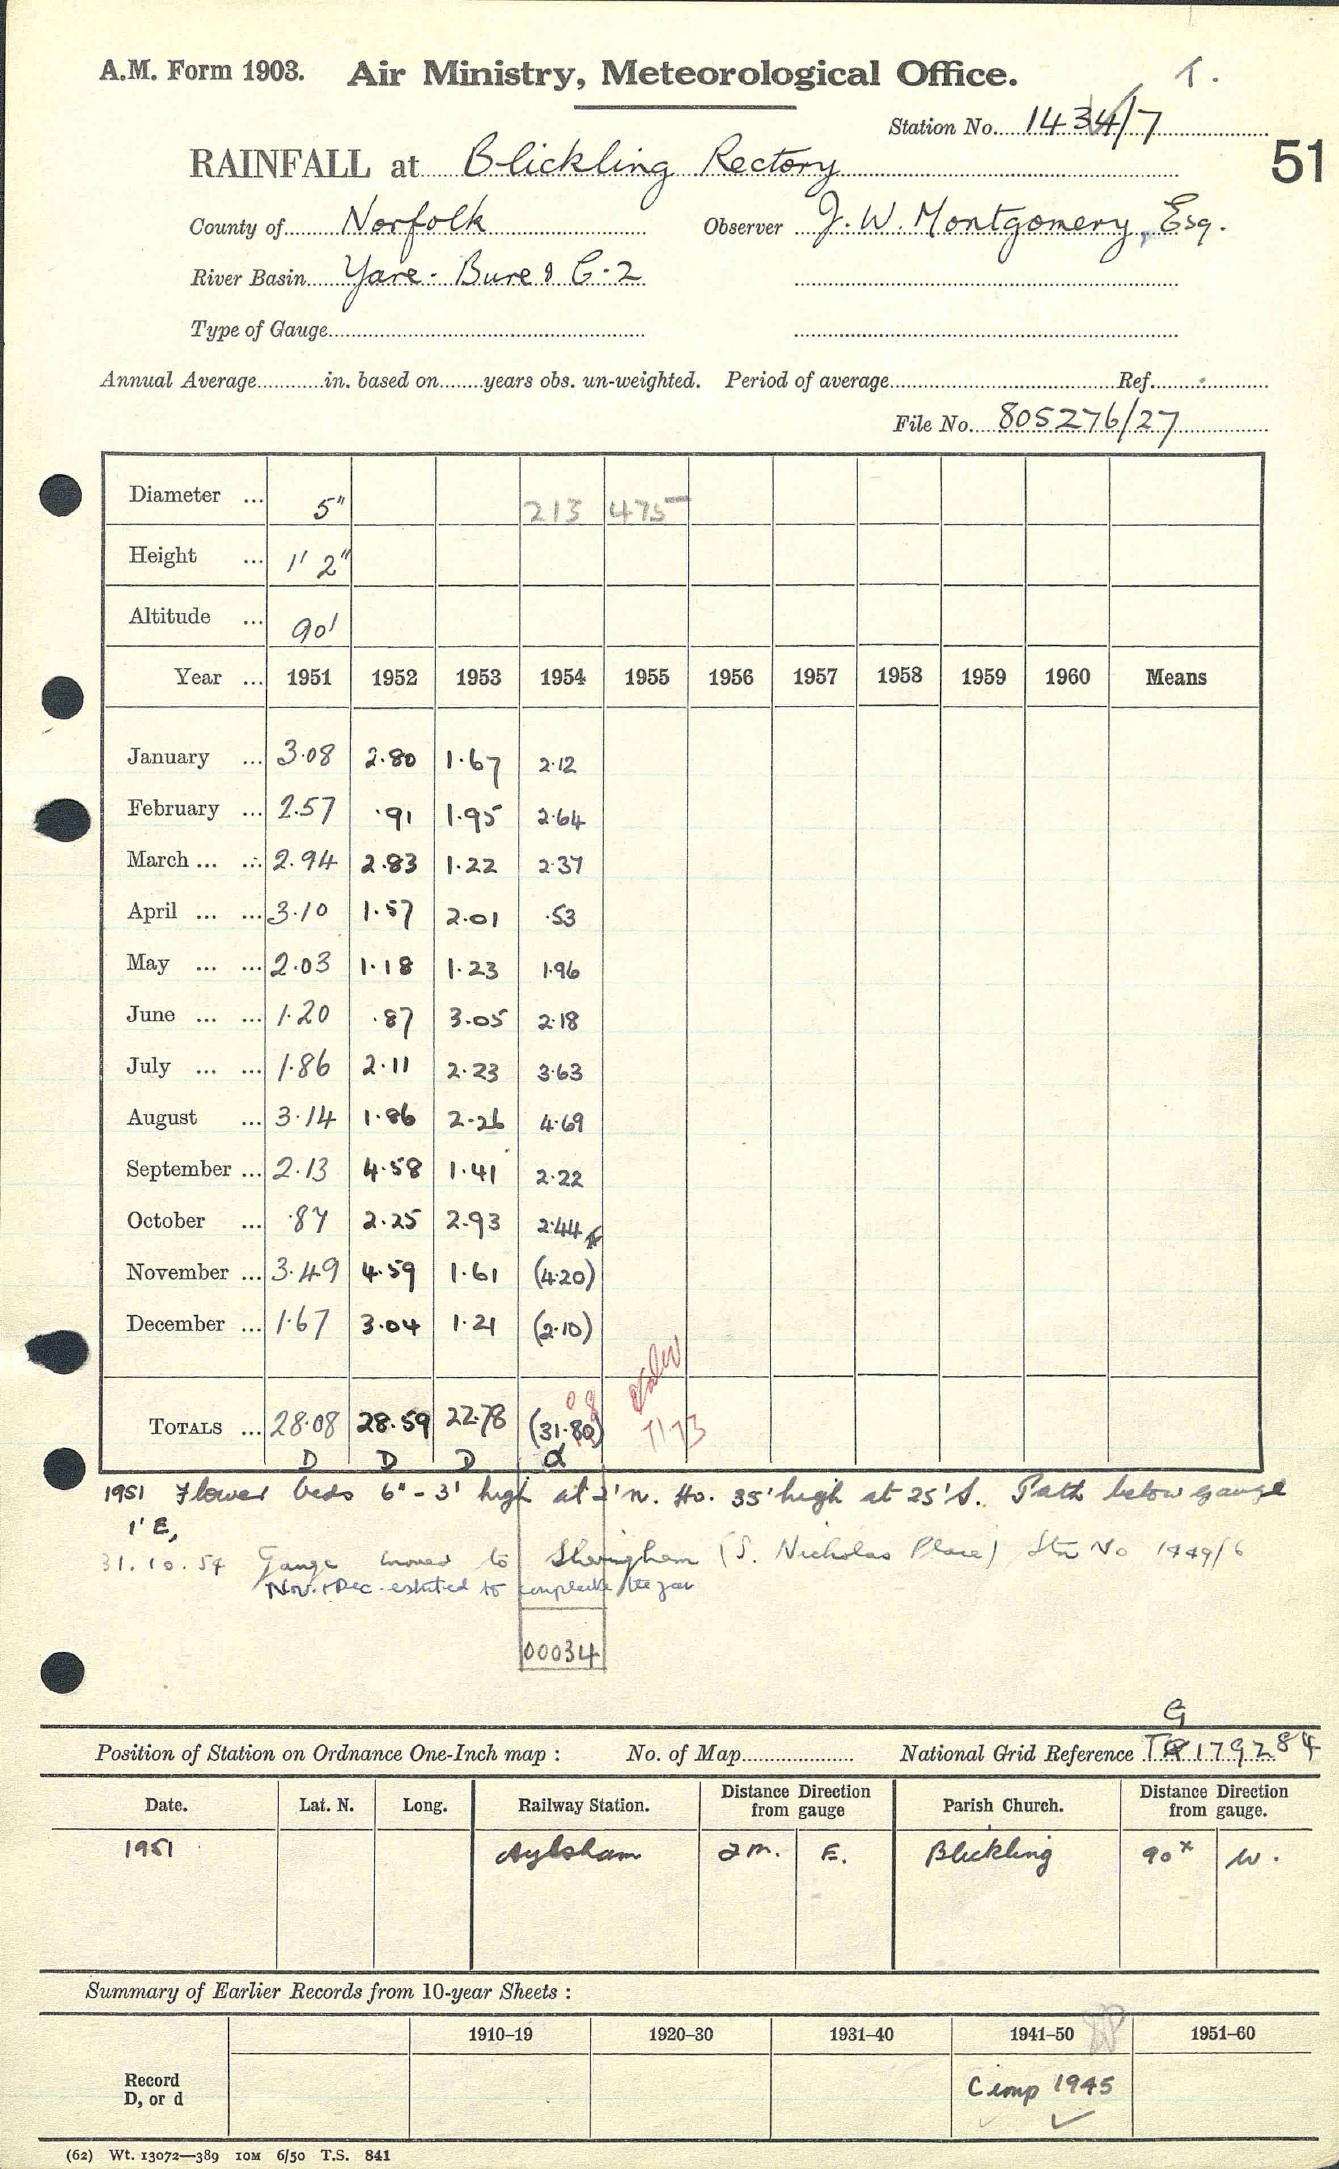 A.M. Form 1903. Air Ministry, Meteorological Office. T.
Station No. 1434/7
51
RAINFALL at Blickling Rectory
County of Norfolk Observer J. W. Montgomery, Esq.
River Basin Yare - Bure & C-2
Type of Gauge
Annual Average in. based on years obs. un-weighted. Period of average Ref.
File No. 805276/27
Diameter ... 5" 213 475
Height ... 1' 2"
Altitude ... 90'
Year ... 1951 1952 1953 1954 1955 1956 1957 1958 1959 1960 Means
January ... 3.08 2.80 1.67 2.12
February ... 2.57 .91 1.95 2.64
March ... ... 2.94 2.83 1.22 2.37
April ... ... 3.10 1.57 2.01 .53
May ... ... 2.03 1.18 1.23 1.96
June ... ... 1.20 .87 3.05 2.18
July ... ... 1.86 2.11 2.23 3.63
August ... 3.14 1.86 2.26 4.69
September ... 2.13 4.58 1.41 2.22
October ... .87 2.25 2.93 2.44
November ... 3.49 4.59 1.61 (4.20)
December ... 1.67 3.04 1.21 (2.10)
08
TOTALS ... 28.08 28.59 22.78 (31.80) 7173
D D D d
1951 Flower beds 6" - 3' high at 2' N. Ho. 35' high at 25' S. Path below gauge
1' E,
31.10.54 Gauge moved to Sheringham (S. Nicholas Place) Stn No 1449/6
Nov. & Dec. estimated to complete the year
00034
G
Position of Station on Ordnance One-Inch map : No. of Map National Grid Reference TR 179284
Date. Lat. N. Long. Railway Station. Distance from gauge Direction Parish Church. Distance from gauge. Direction
1951 Aylsham 2m. E. Blickling 90x W.
Summary of Earlier Records from 10-year Sheets :
1910–19 1920–30 1931–40 1941–50 1951–60
Record
D, or d
Comp 1945
(62) Wt. 13072—389 10M 6/50 T.S. 841